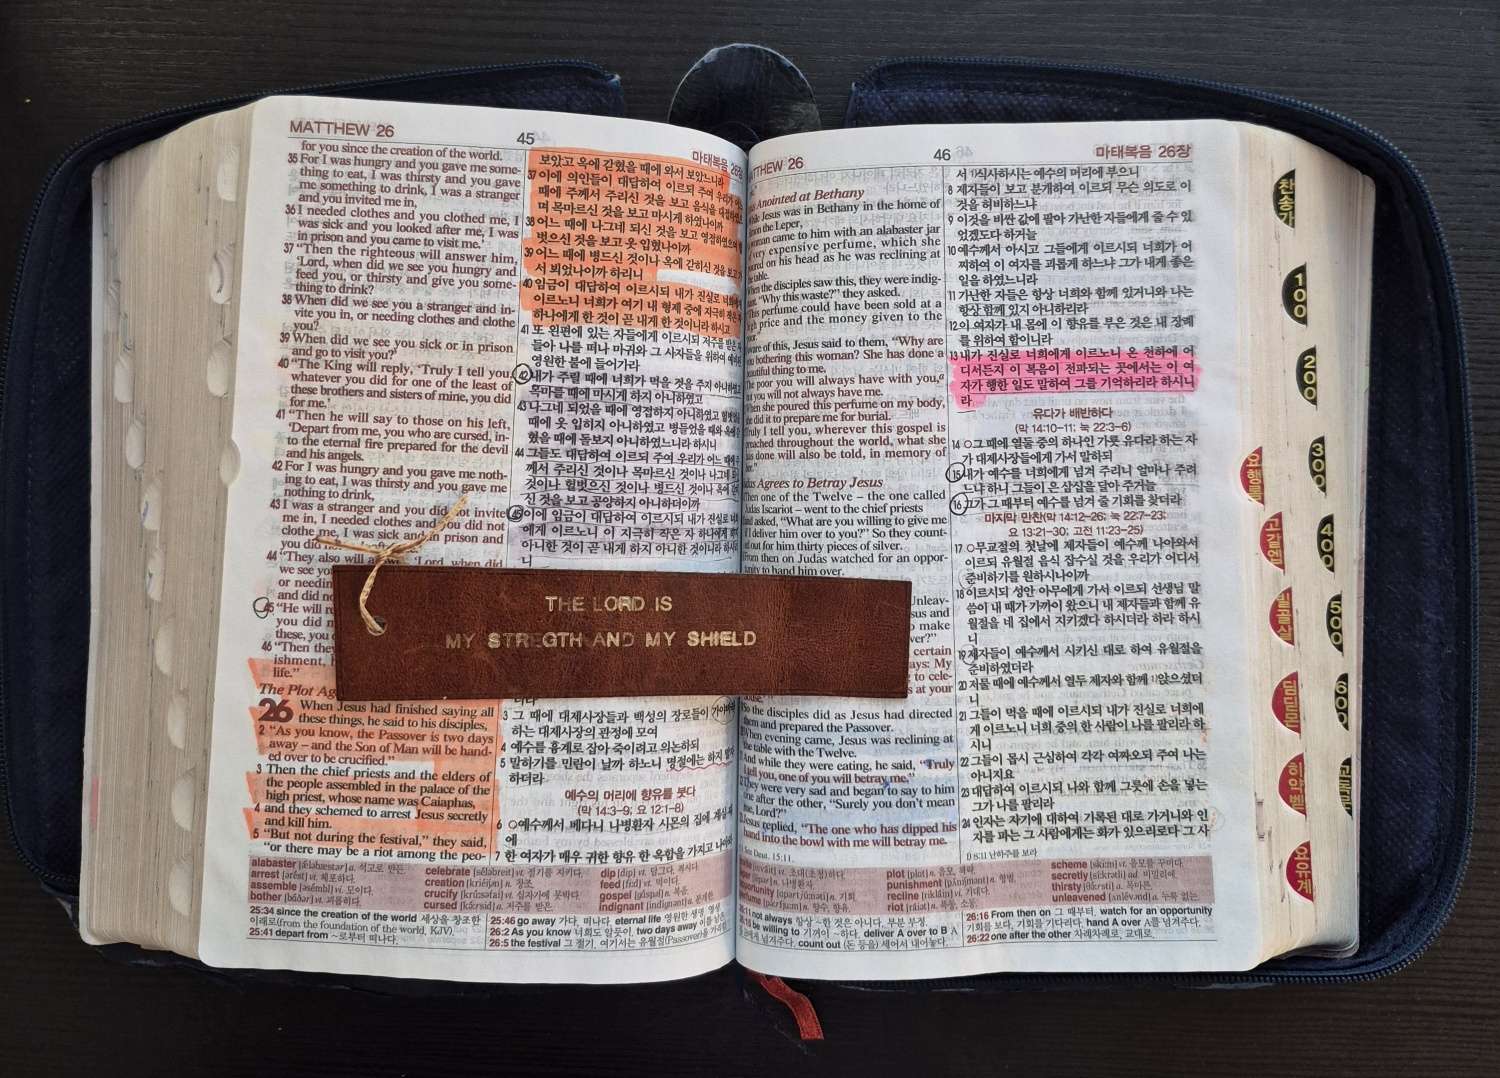 MATTHEW 26
45
마태복음 26장
for you since the creation of the world.
35 For I was hungry and you gave me some-
thing to eat, I was thirsty and you gave
me something to drink, I was a stranger
and you invited me in,
36 I needed clothes and you clothed me, I
was sick and you looked after me, I was
in prison and you came to visit me.'
37 "Then the righteous will answer him,
'Lord, when did we see you hungry and
feed you, or thirsty and give you some-
thing to drink?
38 When did we see you a stranger and in-
vite you in, or needing clothes and clothe
you?
39 When did we see you sick or in prison
and go to visit you?'
40 "The King will reply, 'Truly I tell you,
whatever you did for one of the least of
these brothers and sisters of mine, you did
for me.'
41 "Then he will say to those on his left,
'Depart from me, you who are cursed, in-
to the eternal fire prepared for the devil
and his angels.
42 For I was hungry and you gave me noth-
ing to eat, I was thirsty and you gave me
nothing to drink,
43 I was a stranger and you did not invite
me in, I needed clothes and you did not
clothe me, I was sick and in prison and
you did
44 "They also will 'Lord, when did
we see you
or needin
and did no
45 "He will re
you did n
these, you
46 "Then they
ishment,
life."
The Plot Ag
26 When Jesus had finished saying all
these things, he said to his disciples,
2 "As you know, the Passover is two days
away – and the Son of Man will be hand-
ed over to be crucified."
3 Then the chief priests and the elders of
the people assembled in the palace of the
high priest, whose name was Caiaphas,
4 and they schemed to arrest Jesus secretly
and kill him.
5 "But not during the festival," they said,
"or there may be a riot among the peo-
보았고 옥에 갇혔을 때에 와서 보았느니라
37 이에 의인들이 대답하여 이르되 주여 우리가
때에 주께서 주리신 것을 보고 음식을 대접하였으
며 목마르신 것을 보고 마시게 하였나이까
38 어느 때에 나그네 되신 것을 보고 영접하였으며
벗으신 것을 보고 옷 입혔나이까
39 어느 때에 병드신 것이나 옥에 갇히신 것을 보고
서 뵈었나이까 하리니
40 임금이 대답하여 이르시되 내가 진실로 너희에게
이르노니 너희가 여기 내 형제 중에 지극히 작은
하나에게 한 것이 곧 내게 한 것이니라 하시고
41 또 왼편에 있는 자들에게 이르시되 저주를 받은
들아 나를 떠나 마귀와 그 사자들을 위하여
영원한 불에 들어가라
42 내가 주릴 때에 너희가 먹을 것을 주지 아니하였고
목마를 때에 마시게 하지 아니하였고
43 나그네 되었을 때에 영접하지 아니하였고
때에 옷 입히지 아니하였고 병들었을 때와 옥에
혔을 때에 돌보지 아니하였느니라 하시니
44 그들도 대답하여 이르되 주여 우리가 어느 때에
께서 주리신 것이나 목마르신 것이나 나그네
것이나 헐벗으신 것이나 병드신 것이나 옥에
신 것을 보고 공양하지 아니하더이까
45 이에 임금이 대답하여 이르시되 내가 진실로
에게 이르노니 이 지극히 작은 자 하나에게
아니한 것이 곧 내게 하지 아니한 것이니라 하시
니
THE LORD IS
MY STREGTH AND MY SHIELD
3 그 때에 대제사장들과 백성의 장로들이
하는 대제사장의 관정에 모여
4 예수를 흉계로 잡아 죽이려고 의논하되
5 말하기를 민란이 날까 하노니 명절에는 하지
하더라
예수의 머리에 향유를 붓다
(막 14:3-9; 요 12:1-8)
6 예수께서 베다니 나병환자 시몬의 집에 계실
에
7 한 여자가 매우 귀한 향유 한 옥합을 가지고
alabaster
석고로 만든.
arrest
체포하다.
assemble
모이다.
bother
괴롭히다.
celebrate
절기를 지키다.
creation
창조.
crucify
십자가에 못박다.
cursed
저주를 받은.
dip
담그다, 적시다.
feed
먹이다.
gospel
복음.
indignant
분개한.
25:34 since the creation of the world 세상을 창조한
이래로(from the foundation of the world, KJV).
25:41 depart from ~로부터 떠나다.
25:46 go away 가다, 떠나다. eternal life 영원한 생명, 영생.
26:2 As you know 너희도 알듯이. two days away
26:5 the festival 그 절기, 여기서는 유월절(Passover)을
THEW 26
46
마태복음 26장
Anointed at Bethany
Jesus was in Bethany in the home of
on the Leper,
woman came to him with an alabaster jar
very expensive perfume, which she
on his head as he was reclining at
table.
When the disciples saw this, they were indig-
"Why this waste?" they asked.
This perfume could have been sold at a
high price and the money given to the
ware of this, Jesus said to them, "Why are
you bothering this woman? She has done a
beautiful thing to me.
The poor you will always have with you,
but you will not always have me.
When she poured this perfume on my body,
she did it to prepare me for burial.
Truly I tell you, wherever this gospel is
preached throughout the world, what she
has done will also be told, in memory of
her."
Judas Agrees to Betray Jesus
Then one of the Twelve – the one called
Judas Iscariot – went to the chief priests
and asked, "What are you willing to give me
if I deliver him over to you?" So they count-
ed out for him thirty pieces of silver.
From then on Judas watched for an oppor-
tunity to hand him over.
Unleav-
sus and
make
ver?"
certain
ays: My
to cele-
s at your
house.'"
So the disciples did as Jesus had directed
them and prepared the Passover.
When evening came, Jesus was reclining at
the table with the Twelve.
And while they were eating, he said, "Truly
I tell you, one of you will betray me."
They were very sad and began to say to him
one after the other, "Surely you don't mean
me, Lord?"
Jesus replied, "The one who has dipped his
hand into the bowl with me will betray me.
See Deut. 15:11.
서 식사하시는 예수의 머리에 부으니
8 제자들이 보고 분개하여 이르되 무슨 의도로 이
것을 허비하느냐
9 이것을 비싼 값에 팔아 가난한 자들에게 줄 수 있
었겠도다 하거늘
10 예수께서 아시고 그들에게 이르시되 너희가 어
찌하여 이 여자를 괴롭게 하느냐 그가 내게 좋은
일을 하였느니라
11 가난한 자들은 항상 너희와 함께 있거니와 나는
항상 함께 있지 아니하리라
12 이 여자가 내 몸에 이 향유를 부은 것은 내 장례
를 위하여 함이니라
13 내가 진실로 너희에게 이르노니 온 천하에 어
디서든지 이 복음이 전파되는 곳에서는 이 여
자가 행한 일도 말하여 그를 기억하리라 하시니
라
유다가 배반하다
(막 14:10-11; 눅 22:3-6)
14 그 때에 열둘 중의 하나인 가룟 유다라 하는 자
가 대제사장들에게 가서 말하되
15 내가 예수를 너희에게 넘겨 주리니 얼마나 주려
느냐 하니 그들이 은 삼십을 달아 주거늘
16 그가 그 때부터 예수를 넘겨 줄 기회를 찾더라
마지막 만찬(막 14:12-26; 눅 22:7-23;
요 13:21-30; 고전 11:23-25)
17 무교절의 첫날에 제자들이 예수께 나아와서
이르되 유월절 음식 잡수실 것을 우리가 어디서
준비하기를 원하시나이까
18 이르시되 성안 아무에게 가서 이르되 선생님 말
씀이 내 때가 가까이 왔으니 내 제자들과 함께 유
월절을 네 집에서 지키겠다 하시더라 하라 하시
니
19 제자들이 예수께서 시키신 대로 하여 유월절을
준비하였더라
20 저물 때에 예수께서 열두 제자와 함께 앉으셨더
니
21 그들이 먹을 때에 이르시되 내가 진실로 너희에
게 이르노니 너희 중의 한 사람이 나를 팔리라 하
시니
22 그들이 몹시 근심하여 각각 여짜오되 주여 나는
아니지요
23 대답하여 이르시되 나와 함께 그릇에 손을 넣는
그가 나를 팔리라
24 인자는 자기에 대하여 기록된 대로 가거니와 인
자를 파는 그 사람에게는 화가 있으리로다 그 사
plot
음모, 책략.
punishment
형벌.
recline
기대다.
riot
폭동, 소동.
scheme
음모를 꾸미다.
secretly
비밀리에
thirsty
목마른.
unleavened
누룩 없는.
26:11 not always 항상 ~한 것은 아니다, 부분 부정.
26:15 be willing to 기꺼이 ~하다. deliver A over to B A
에게 넘겨주다. count out (돈 등을) 세어서 내어놓다.
26:16 From then on 그 때부터. watch for an opportunity
기회를 보다, 기회를 기다리다. hand A over A를 넘겨주다.
26:22 one after the other 차례차례로, 교대로.
찬송가
100
200
300
400
500
600